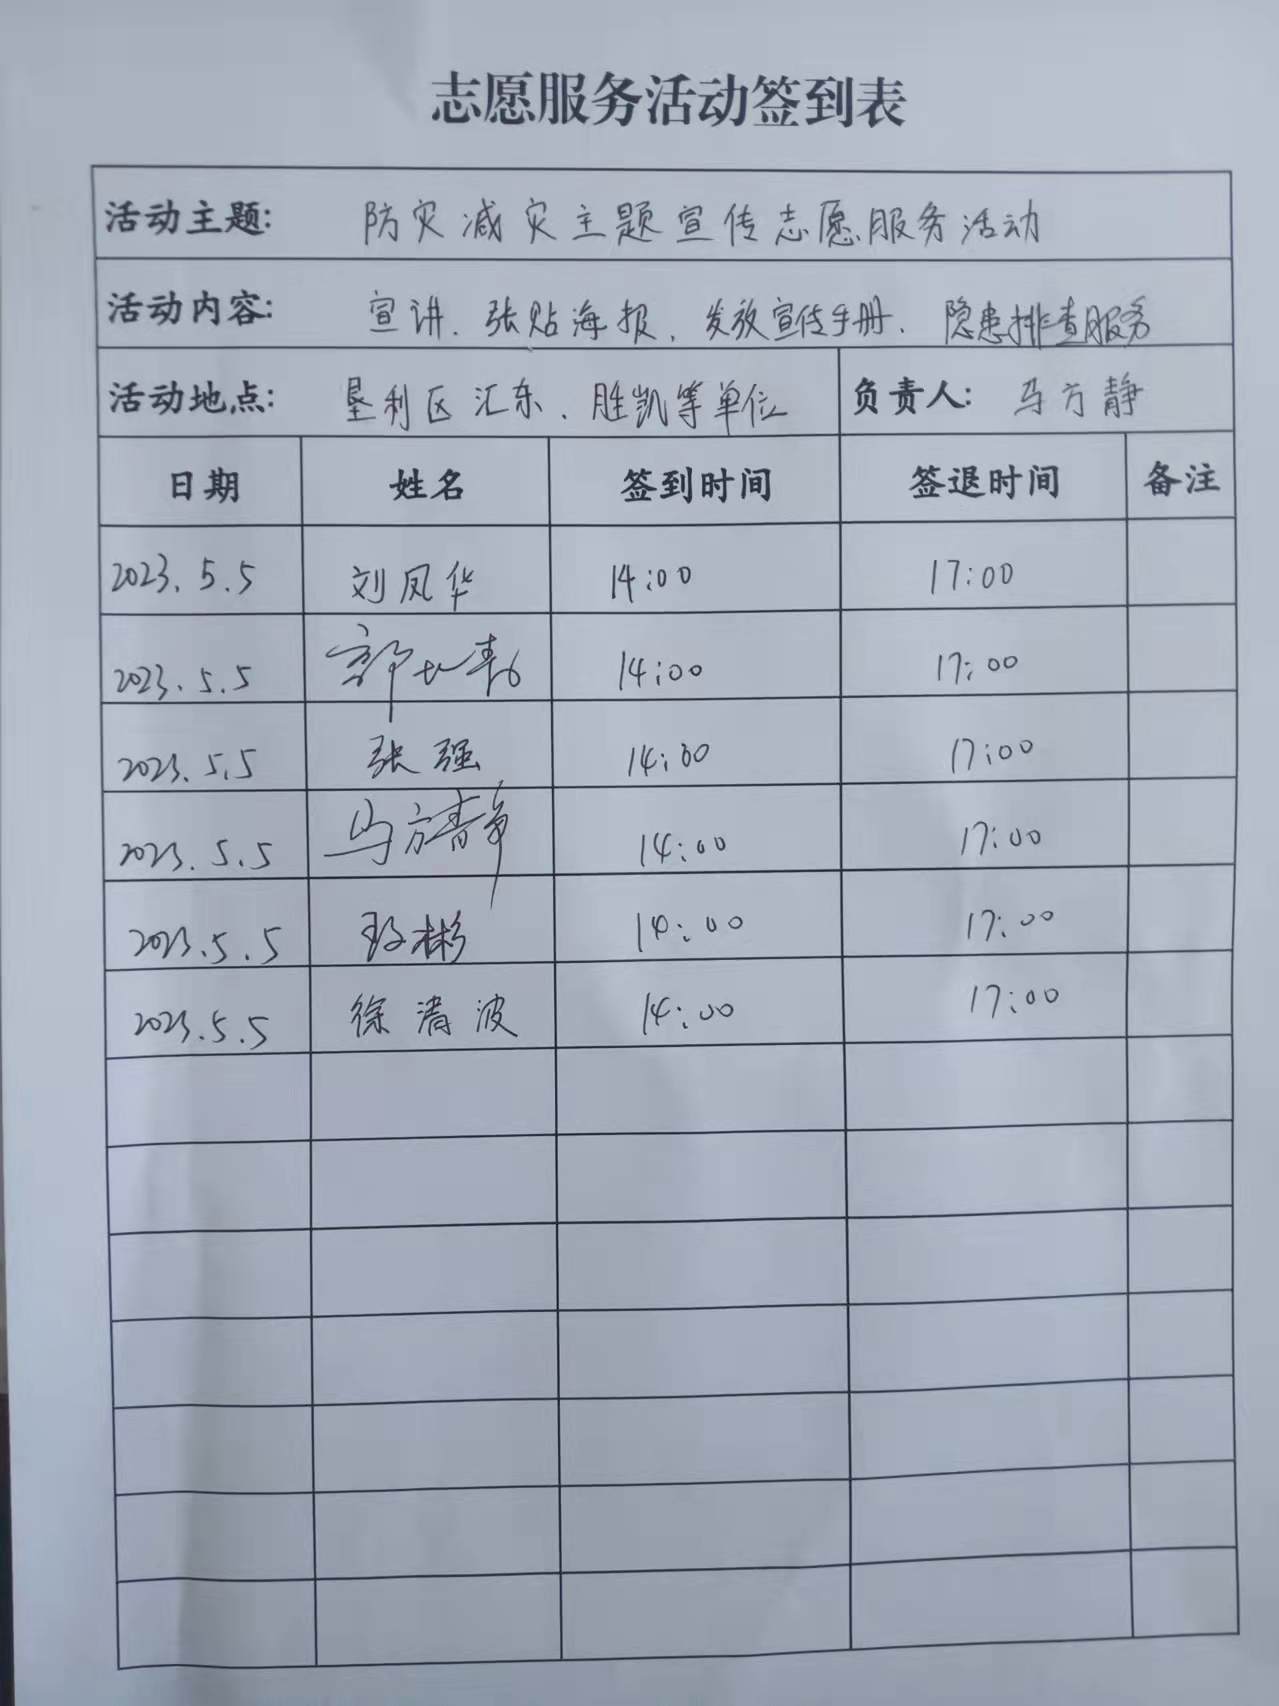 志愿服务活动签到表
活动主题: 防灾减灾主题宣传志愿服务活动
活动内容: 宣讲、张贴海报、发放宣传手册、隐患排查服务
活动地点: 垦利区汇东、胜凯等单位 负责人: 马方静
日期 姓名 签到时间 签退时间 备注
2023.5.5 刘凤华 14:00 17:00
2023.5.5 14:00 17:00
2023.5.5 张强 14:00 17:00
2023.5.5 马方静 14:00 17:00
2023.5.5 14:00 17:00
2023.5.5 徐清波 14:00 17:00